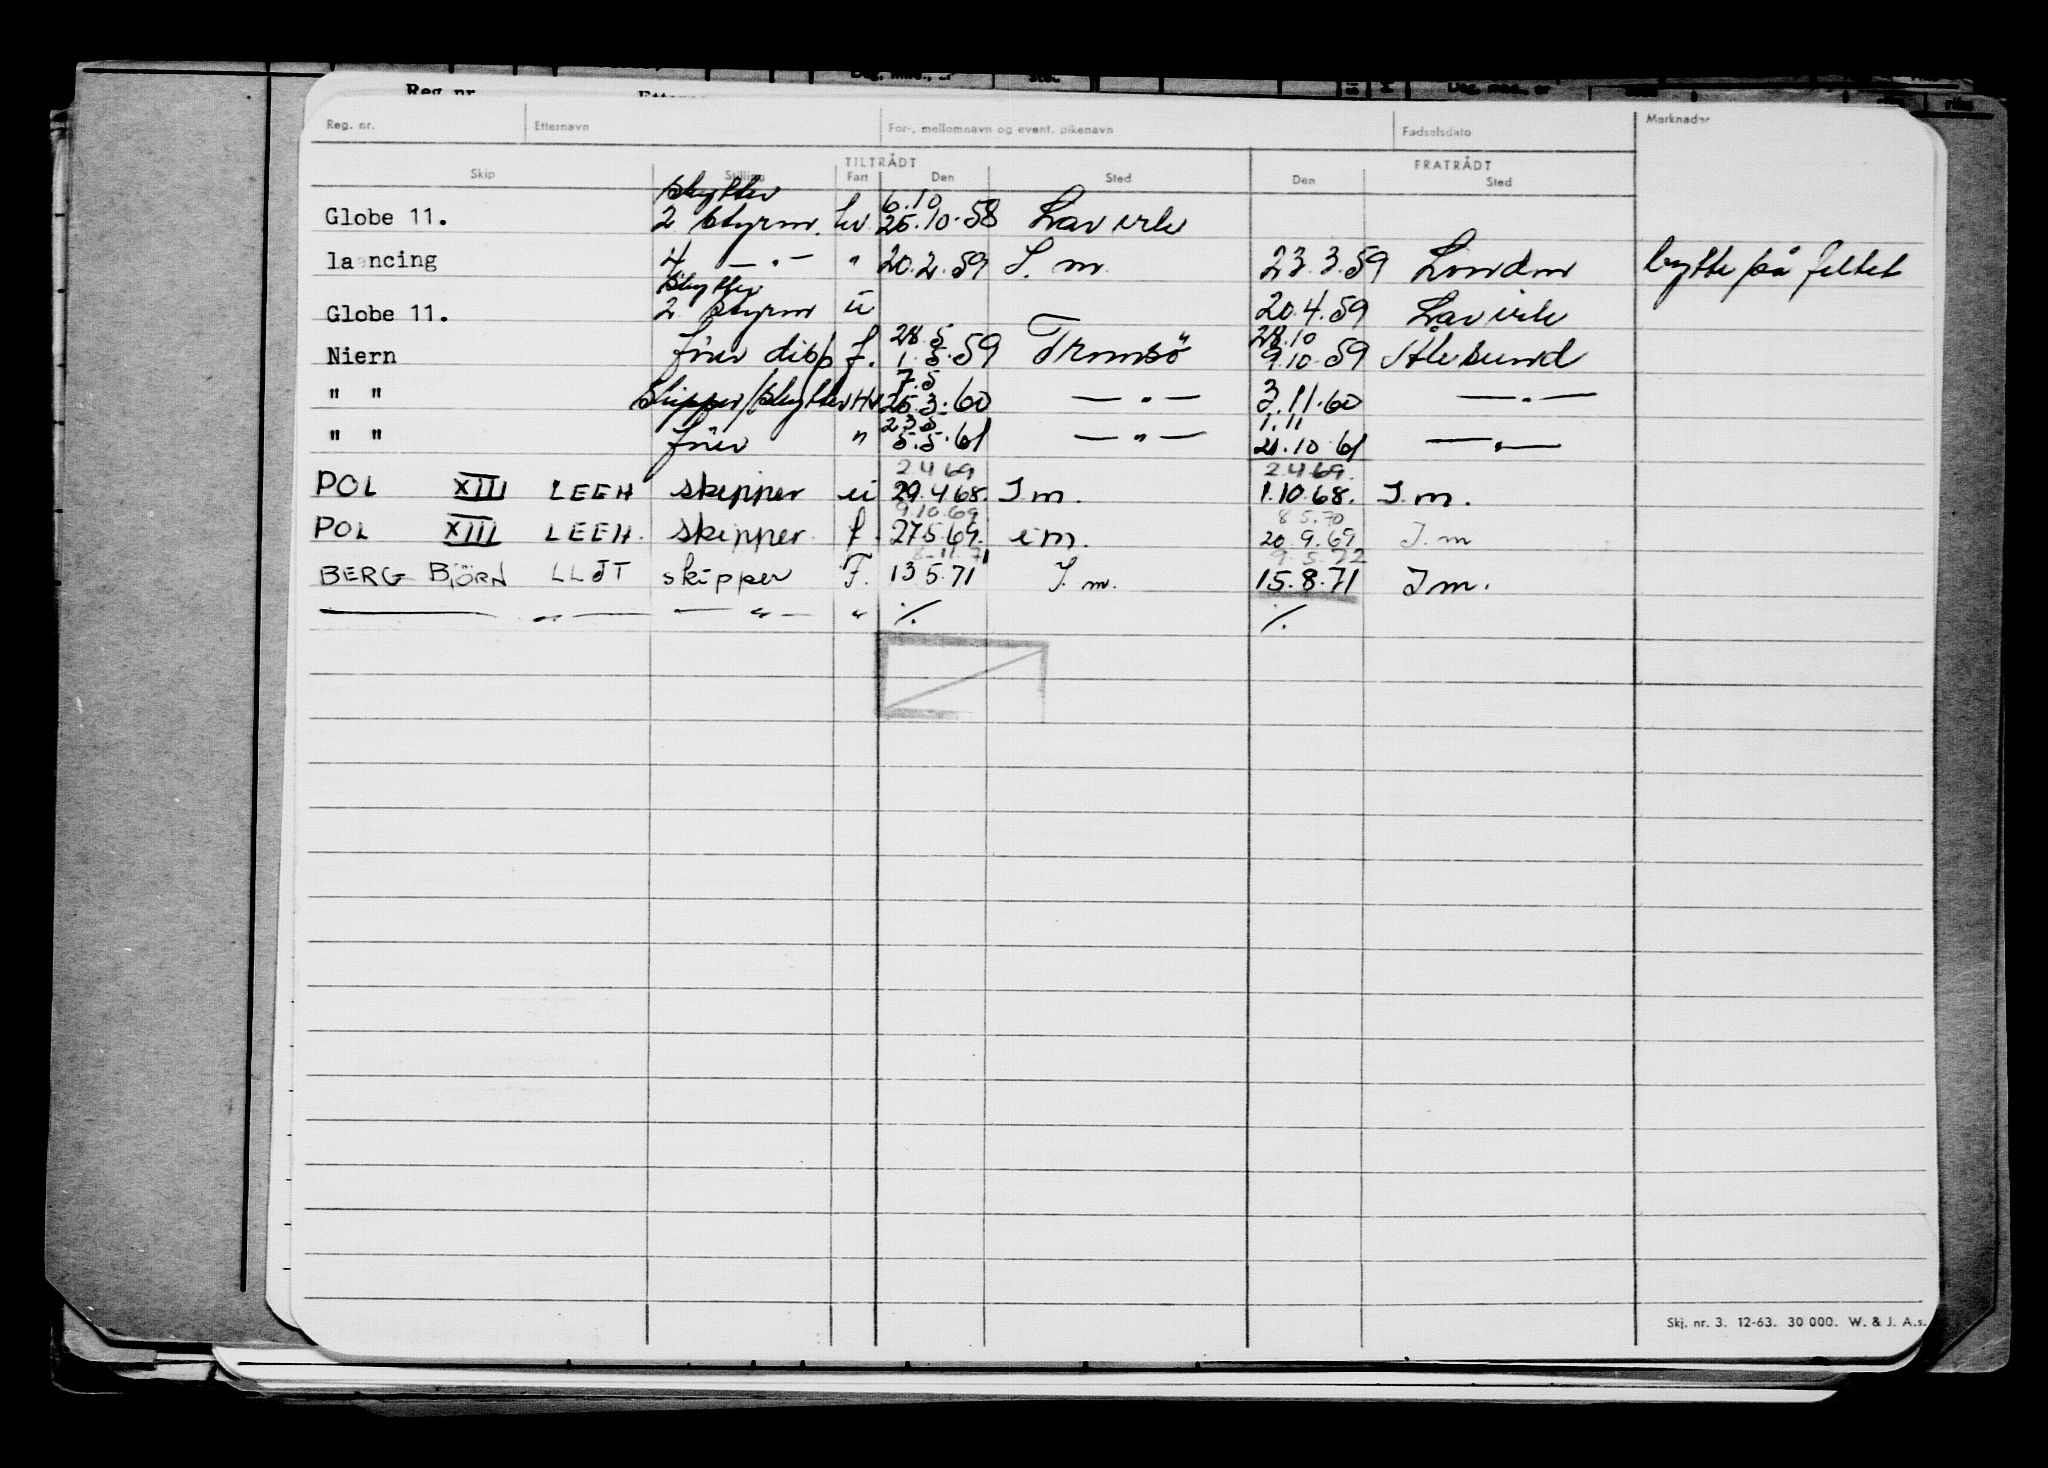 Reg. nr. Etternavn For-, mellomnavn og event. pikenavn Fødselsdato Merknader
TILTRÅDT FRATRÅDT
Skip Stilling Fart Den Sted Den Sted
skytter 6.10
Globe 11. 2 styrm. hv. 25.10.58 Larvik
lancing 4 — " — " 20.2.59 I. m. 23.3.59 London bytte på feltet
skytter
Globe 11. 2 styrm u 20.4.59 Larvik
28.5 28.10
Niern fører disp f. 1.5.59 Tromsö 9.10.59 Ålesund
7.5
" " skipper/skytter Hv 25.3.60 — " — 3.11.60 — " —
23.5 1.11
" " fører " 5.5.61 — " — 21.10 61 — " —
2 4 69 2.4.69.
POL XIII LEEH skipper u 29.4 68. I m. 1.10.68. I. m.
9.10.69 8.5.70
POL XIII LEEH. skipper. f. 27.5.69. i m. 20.9.69 I. m
8.11.71 9.5.72
BERG BJÖRN LLJT skipper F. 13 5.71 I. m. 15.8.71 I m.
— " — — " — " ⁒ ⁒
Skj. nr. 3. 12-63. 30 000. W. & J. A.s.